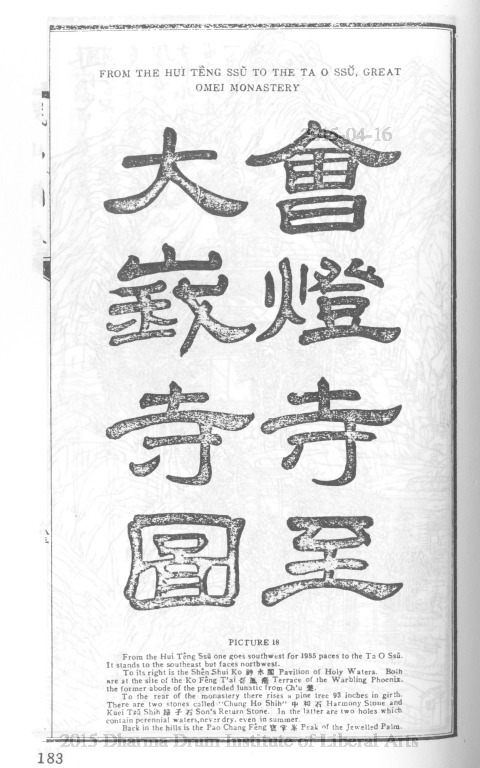 FROM THE HUI TÊNG SSŬ TO THE TA O SSŬ, GREAT
OMEI MONASTERY
2015-04-16
會燈寺至
大峩寺圖
PICTURE 18
From the Hui Têng Ssŭ one goes southwest for 1985 paces to the Ta O Ssŭ.
It stands to the southeast but faces northwest.
To its right is the Shên Shui Ko 神水閣 Pavilion of Holy Waters. Both
are at the site of the Ko Fêng T'ai Terrace of the Warbling Phoenix,
the former abode of the pretended lunatic from Ch'u 楚.
To the rear of the monastery there rises a pine tree 93 inches in girth.
There are two stones called "Chung Ho Shih" 中和石 Harmony Stone and
Kuei Tzŭ Shih 歸子石 Son's Return Stone. In the latter are two holes which
contain perennial waters, never dry, even in summer.
Back in the hills is the Pao Chang Fêng 寶掌峯 Peak of the Jewelled Palm.
2015 Dharma Drum Institute of Liberal Arts
183